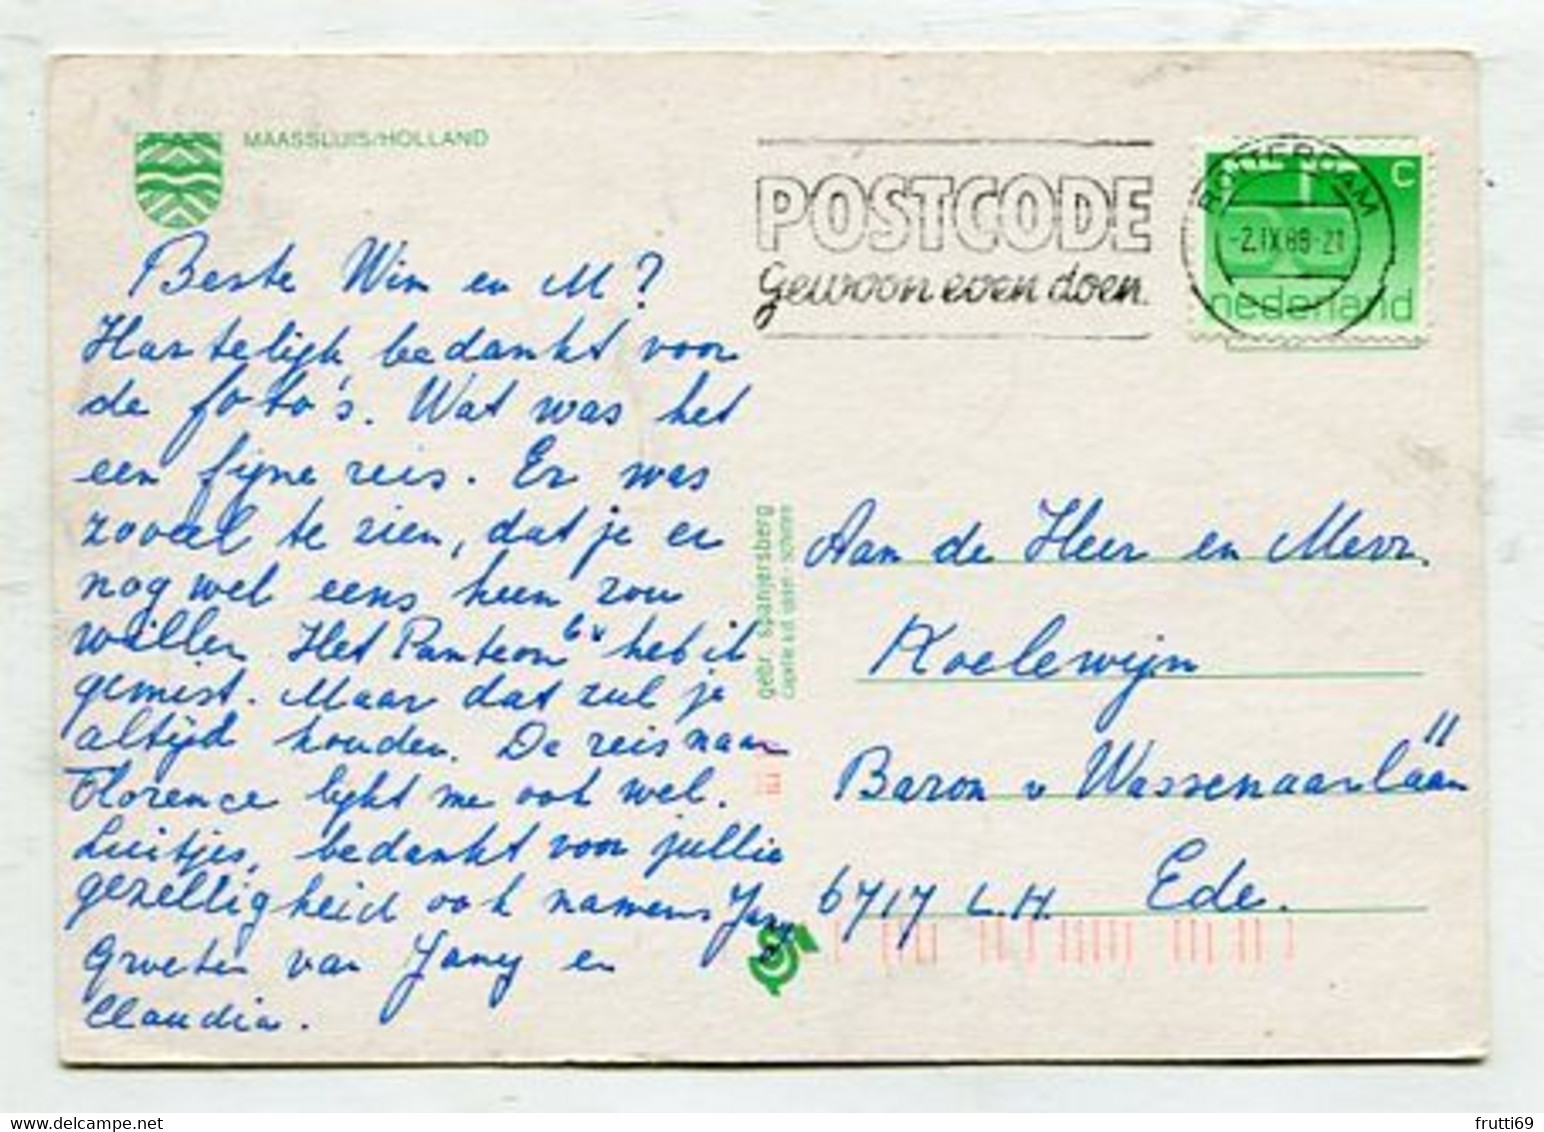 MAASSLUIS/HOLLAND
POSTCODE
gewoon even doen.
ROTTERDAM
-2.IX.86-21
c
nederland
Beste Wim en M?
Hartelijk bedankt voor
de foto's. Wat was het
een fijne reis. Er was
zoveel te zien, dat je er
nog wel eens heen zou
willen. Het Panteon heb ik
gemist. Maar dat zul je
altijd houden. De reis naar
Florence lijkt me ook wel.
Luitjes, bedankt voor jullie
gezelligheid ook namens Jany
Groeten van Jany en
Claudia.
gebr. spanjersberg
capelle a/d ijssel - schoten
Aan de Heer en Mevr.
Koelewijn
Baron v Wassenaarlaan 11
6717 L.H. Ede.
frutti69